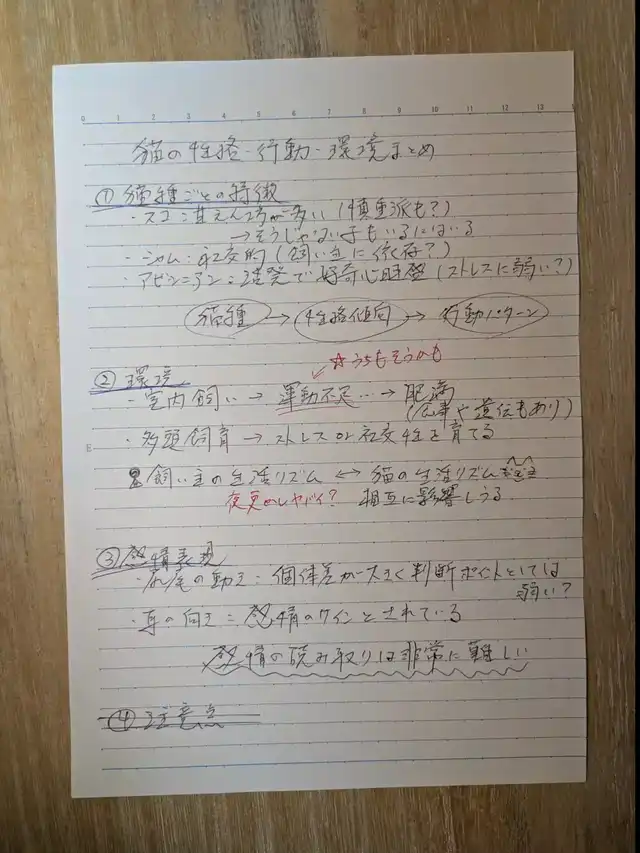 0 1 2 3 4 5 6 7 8 9 10 11 12 13
猫の性格・行動・環境まとめ
① 猫種ごとの特徴
・スコ：甘えん坊が多い（慎重派も？）
→そうじゃない子もいるにはいる
・シャム：社交的（飼い主に依存？）
・アビシニアン：活発で好奇心旺盛（ストレスに弱い？）
猫種 → 性格傾向 → 行動パターン
☆うちもそうかも
② 環境
・室内飼い → 運動不足… → 肥満
（食事や遺伝もあり）
・多頭飼育 → ストレス or 社交性を育てる
飼い主の生活リズム ↔ 猫の生活リズム
夜更かしヤバイ？ 相互に影響しうる
③ 感情表現
・尻尾の動き：個体差が大きく判断ポイントとしては
弱い？
・耳の向き：感情のサインとされている
感情の読み取りは非常に難しい
④ 注意点